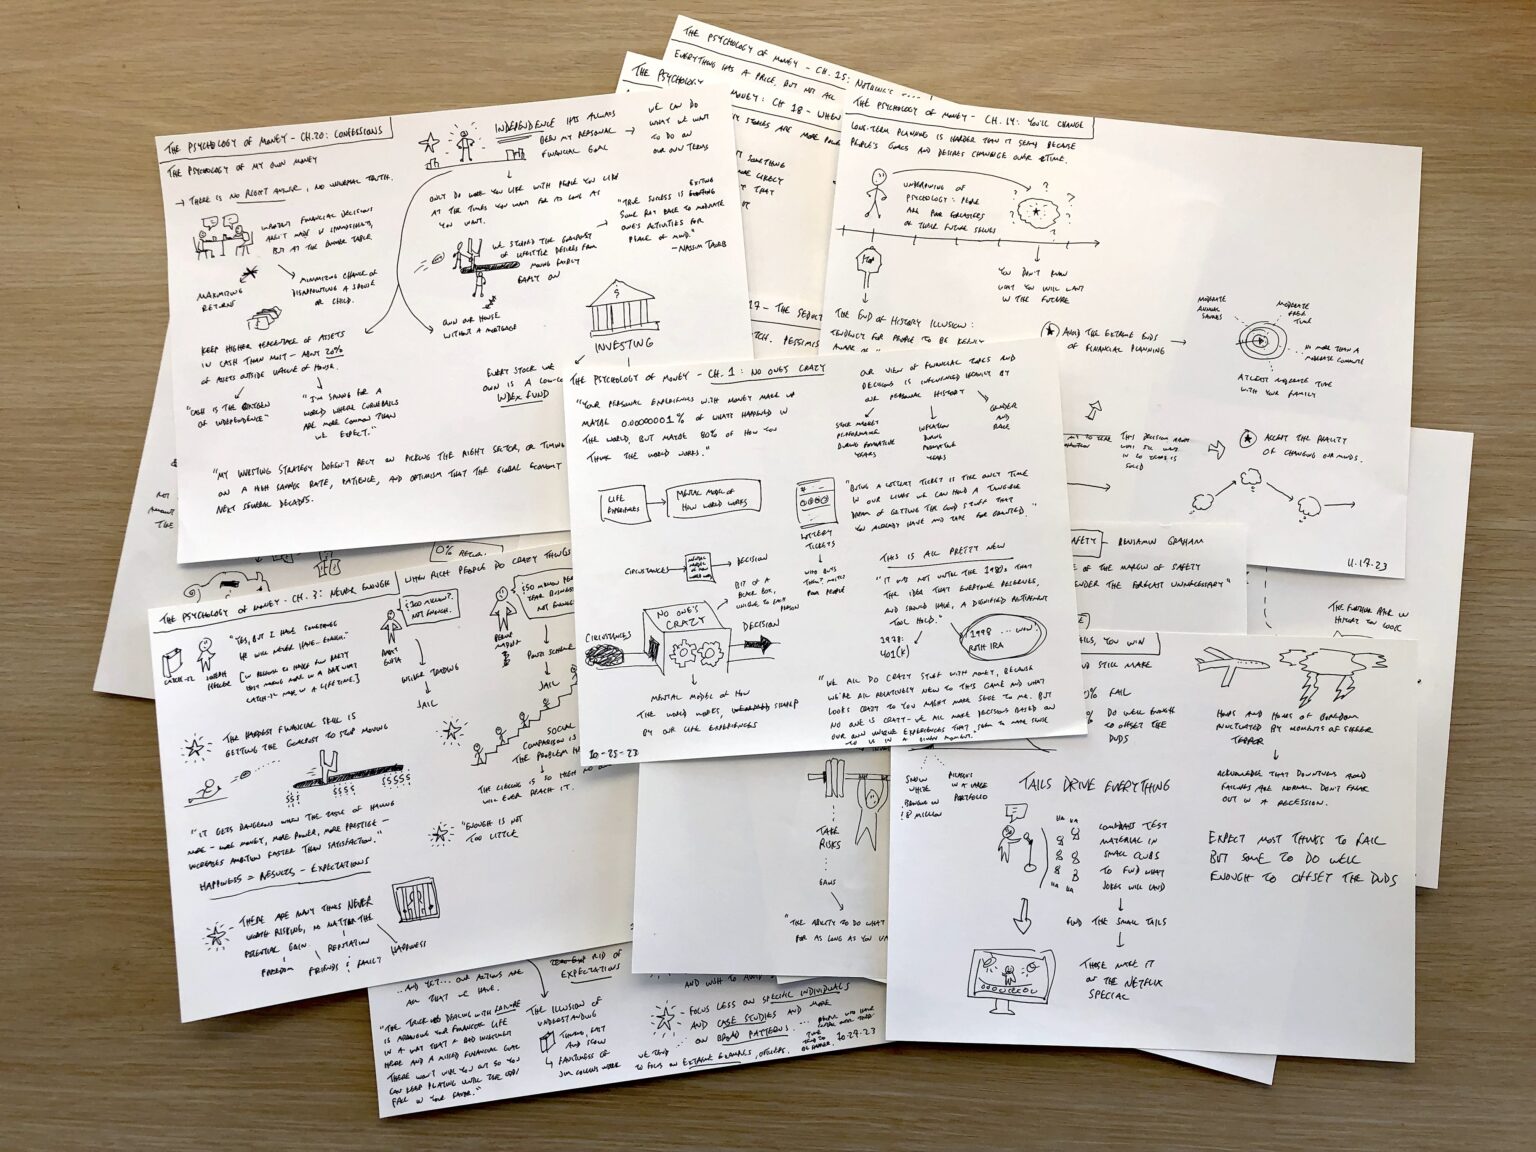 THE PSYCHOLOGY OF MONEY - CH. 15: NOTHING'S
EVERYTHING HAS A PRICE, BUT NOT ALL
THE PSYCHOLOGY
MONEY: CH 18 - WHEN
STORIES ARE MORE
SOMETHING
LIKELY
THAT
17 - THE SEDUCT
PESSIMIS
THE PSYCHOLOGY OF MONEY - CH. 14: YOU'LL CHANGE
LONG-TERM PLANNING IS HARDER THAN IT SEEMS BECAUSE
PEOPLE'S GOALS AND DESIRES CHANGE OVER TIME.
UNDERPINNING OF
PSYCHOLOGY: PEOPLE
ARE POOR FORECASTERS
OF THEIR FUTURE SELVES
? ? ? ?
YOU DON'T KNOW
WHAT YOU WILL WANT
IN THE FUTURE
THE END OF HISTORY ILLUSION:
TENDENCY FOR PEOPLE TO BE KEENLY
AWARE OF
AVOID THE EXTREME ENDS
OF FINANCIAL PLANNING
MODERATE
ANNUAL
SAVINGS
MODERATE
FREE
TIME
NO MORE THAN A
MODERATE COMMUTE
AT LEAST MODERATE TIME
WITH YOUR FAMILY
THIS DECISION
ACCEPT THE REALITY
OF CHANGING OUR MINDS.
11.17.23
THE PSYCHOLOGY OF MONEY - CH.20: CONFESSIONS
THE PSYCHOLOGY OF MY OWN MONEY
→ THERE IS NO RIGHT ANSWER, NO UNIVERSAL TRUTH.
FINANCIAL DECISIONS
AREN'T MADE IN SPREADSHEETS,
BUT AT THE DINNER TABLE
MAXIMIZING
RETURNS
MINIMIZING CHANCE OF
DISAPPOINTING A SPOUSE
OR CHILD.
KEEP HIGHER PERCENTAGE OF ASSETS
IN CASH THAN MOST - ABOUT 20%
OF ASSETS OUTSIDE VALUE OF HOUSE.
"CASH IS THE OXYGEN
OF INDEPENDENCE"
"I'M SAVING FOR A
WORLD WHERE CURVEBALLS
ARE MORE COMMON THAN
WE EXPECT."
INDEPENDENCE HAS ALWAYS
BEEN MY PERSONAL
FINANCIAL GOAL
WE CAN DO
WHAT WE WANT
TO DO ON
OUR OWN TERMS
ONLY DO WORK YOU LIKE WITH PEOPLE YOU LIKE
AT THE TIMES YOU WANT FOR AS LONG AS
YOU WANT.
WE STOPPED THE GOALPOST
OF LIFESTYLE DESIRES FROM
MOVING FAIRLY
EARLY ON
EXITING
"TRUE SUCCESS IS
SOME RAT RACE TO MODERATE
ONE'S ACTIVITIES FOR
PEACE OF MIND."
- NASSIM TALEB
OWN OUR HOUSE
WITHOUT A MORTGAGE
$
INVESTING
EVERY STOCK WE
OWN IS A LOW-COST
INDEX FUND
"MY INVESTING STRATEGY DOESN'T RELY ON PICKING THE RIGHT SECTOR, OR TIMING
ON A HIGH SAVINGS RATE, PATIENCE, AND OPTIMISM THAT THE GLOBAL ECONOMY
NEXT SEVERAL DECADES.
THE PSYCHOLOGY OF MONEY - CH. 1: NO ONE'S CRAZY
"YOUR PERSONAL EXPERIENCES WITH MONEY MAKE UP
MAYBE 0.00000001% OF WHAT'S HAPPENED IN
THE WORLD, BUT MAYBE 80% OF HOW YOU
THINK THE WORLD WORKS."
OUR VIEW OF FINANCIAL TOPICS AND
DECISIONS IS INFORMED HEAVILY BY
OUR PERSONAL HISTORY
STOCK MARKET
PERFORMANCE
DURING FORMATIVE
YEARS
INFLATION
DURING
FORMATIVE
YEARS
GENDER
AND
RACE
LIFE
EXPERIENCES
MENTAL MODEL OF
HOW WORLD WORKS
LOTTERY
TICKETS
WHO BUYS
THEM? MOSTLY
POOR PEOPLE
"BUYING A LOTTERY TICKET IS THE ONLY TIME
IN OUR LIVES WE CAN HOLD A TANGIBLE
DREAM OF GETTING THE GOOD STUFF THAT
YOU ALREADY HAVE AND TAKE FOR GRANTED."
CIRCUMSTANCES
MENTAL
MODEL OF
HOW WORLD
WORKS
DECISION
BIT OF A
BLACK BOX,
UNIQUE TO EACH
PERSON
NO ONE'S
CRAZY
CIRCUMSTANCES
DECISION
MENTAL MODEL OF HOW
THE WORLD WORKS, SHAPED
BY OUR LIFE EXPERIENCES
10-25-23
THIS IS ALL PRETTY NEW
"IT WAS NOT UNTIL THE 1980s THAT
THE IDEA THAT EVERYONE DESERVES,
AND SHOULD HAVE, A DIGNIFIED RETIREMENT
TOOK HOLD."
1978:
401(K)
1998
ROTH IRA
"WE ALL DO CRAZY STUFF WITH MONEY, BECAUSE
WE'RE ALL RELATIVELY NEW TO THIS GAME AND WHAT
LOOKS CRAZY TO YOU MIGHT MAKE SENSE TO ME. BUT
NO ONE IS CRAZY - WE ALL MAKE DECISIONS BASED ON
OUR OWN UNIQUE EXPERIENCES THAT SEEM TO MAKE SENSE
TO US IN A GIVEN MOMENT."
0% RETURN.
THE PSYCHOLOGY OF MONEY - CH. 3: NEVER ENOUGH
WHEN RICH PEOPLE DO CRAZY THINGS
CATCH-22
JOSEPH
HELLER
"YES, BUT I HAVE SOMETHING
HE WILL NEVER HAVE. ENOUGH."
$100 MILLION?
NOT ENOUGH.
RAJAT
GUPTA
INSIDER TRADING
JAIL
BERNIE
MADOFF
PONZI SCHEME
JAIL
SOCIAL
COMPARISON IS
THE PROBLEM
THE CEILING IS SO HIGH NO
WILL EVER REACH IT.
THE HARDEST FINANCIAL SKILL IS
GETTING THE GOALPOST TO STOP MOVING
$$$ $$$$ $$$$$
"IT GETS DANGEROUS WHEN THE TASTE OF HAVING
MORE - MORE MONEY, MORE POWER, MORE PRESTIGE -
INCREASES AMBITION FASTER THAN SATISFACTION."
HAPPINESS = RESULTS - EXPECTATIONS
"ENOUGH IS NOT
TOO LITTLE
THERE ARE MANY THINGS NEVER
WORTH RISKING, NO MATTER THE
POTENTIAL GAIN
REPUTATION
FREEDOM
FRIENDS & FAMILY
HAPPINESS
SAFETY
- BENJAMIN GRAHAM
OF THE MARGIN OF SAFETY
RENDER THE FORECAST UNNECESSARY"
THE FURTHER BACK IN
HISTORY YOU LOOK
TAILS, YOU WIN
AND STILL MAKE
FAIL
DO WELL ENOUGH
TO OFFSET THE
DUDS
HOURS AND HOURS OF BOREDOM
PUNCTUATED BY MOMENTS OF SHEER
TERROR
ACKNOWLEDGE THAT DOWNTURNS AND
FAILURES ARE NORMAL. DON'T FREAK
OUT IN A RECESSION.
EXPECT MOST THINGS TO FAIL
BUT SOME TO DO WELL
ENOUGH TO OFFSET THE DUDS
SNOW
WHITE
BROUGHT IN
8 MILLION
PICASSOS
IN A LARGE
PORTFOLIO
TAILS DRIVE EVERYTHING
HA HA
HA HA
COMEDIANS TEST
MATERIAL IN
SMALL CLUBS
TO FIND WHAT
JOKES WILL LAND
FIND THE SMALL TAILS
THOSE MAKE IT
ON THE NETFLIX
SPECIAL
TAKE
RISKS
GAINS
"THE ABILITY TO DO WHAT
FOR AS LONG AS YOU WA
...AND YET... OUR ACTIONS ARE
ALL THAT WE HAVE.
"THE TRICK DEALING WITH FAILURE
IS ARRANGING YOUR FINANCIAL LIFE
IN A WAY THAT A BAD INVESTMENT
HERE AND A MISSED FINANCIAL GOAL
THERE WON'T WIPE YOU OUT SO YOU
CAN KEEP PLAYING UNTIL THE ODDS
FALL IN YOUR FAVOR."
RID OF
EXPECTATIONS
THE ILLUSION OF
UNDERSTANDING
THINKING, FAST
AND SLOW
FOCUS LESS ON SPECIFIC INDIVIDUALS
AND CASE STUDIES AND MORE
ON BROAD PATTERNS.
WE TEND
TO FOCUS ON EXTREME EXAMPLES, OUTLIERS.
10-27-23